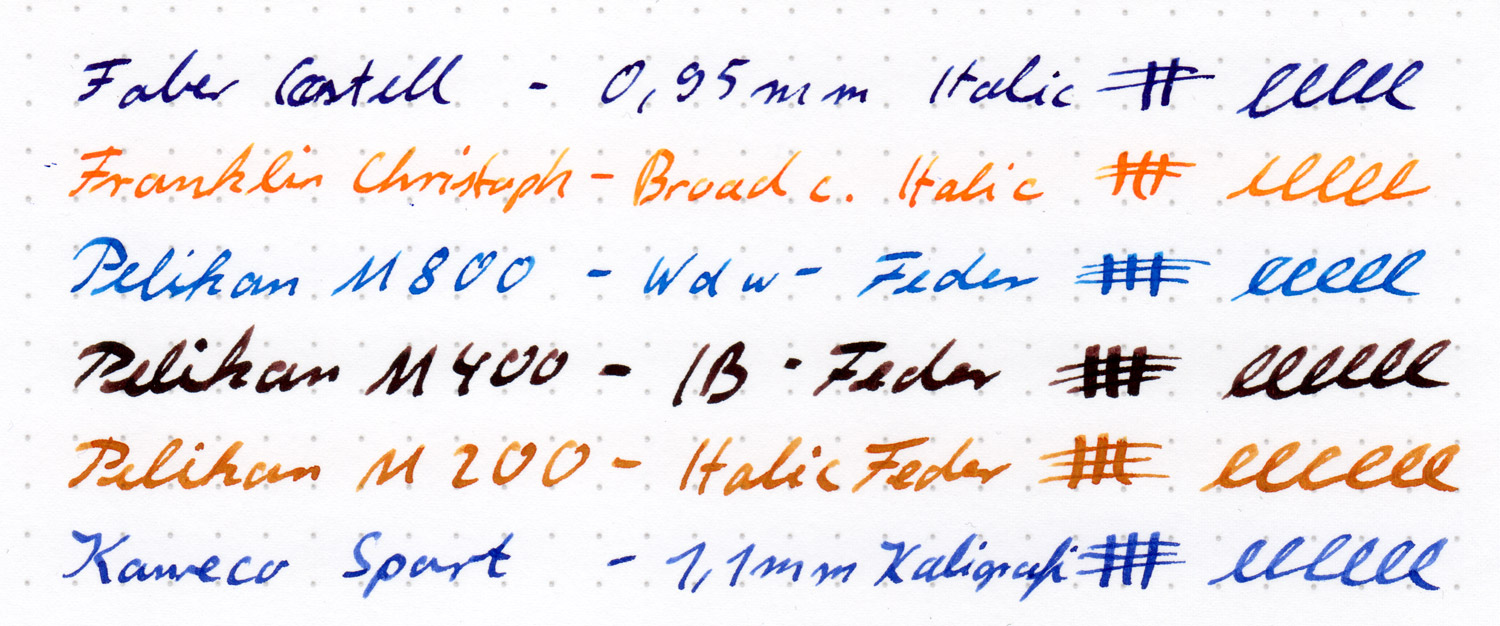 Faber Castell - 0,95mm Italic
Franklin Christoph - Broad c. Italic
Pelikan M800 - Wdw - Feder
Pelikan M400 - IB - Feder
Pelikan M200 - Italic Feder
Kaweco Sport - 1,1mm Kaligrafi